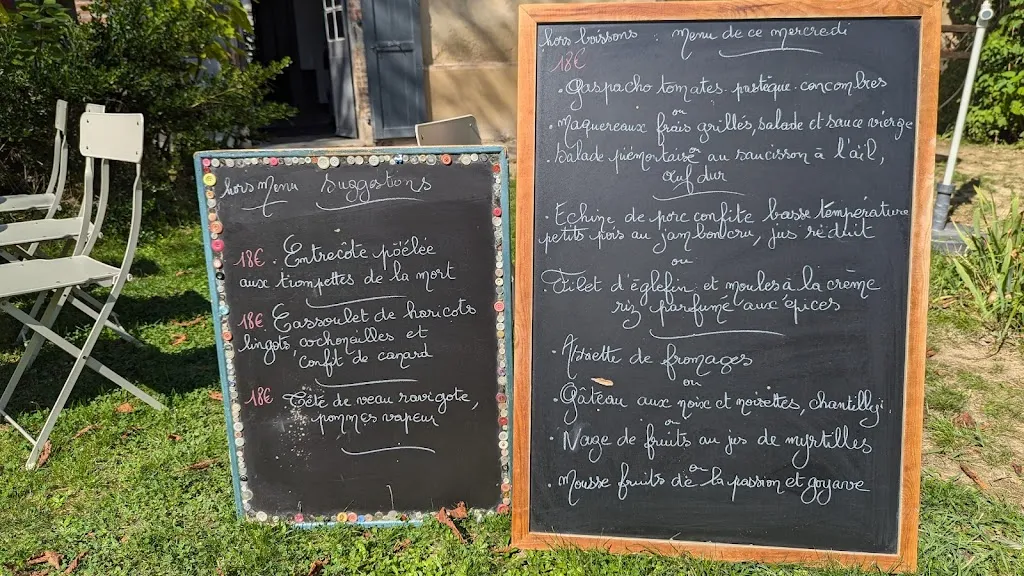 hors Menu Suggestions
18€ . Entrecôte pöêlée
aux trompettes de la mort
18€ Cassoulet de haricots
lingots cochonailles et
confit de canard
18€ Tête de veau ravigote,
pommes vapeur
hors boissons : Menu de ce mercredi
18€
. Gaspacho tomates pastèque concombres
ou
. Maquereaux frais grillés, salade et sauce vierge
ou
Salade piémontaise au saucisson à l'ail,
œuf dur
. Echine de porc confite basse température
petits pois au jambon cru, jus réduit
ou
Filet d'églefin et moules à la crème
riz parfumé aux épices
. Assiette de fromages
ou
. Gâteau aux noix et noisettes, chantilly
ou
. Nage de fruits au jus de myrtilles
ou
. Mousse fruits de la passion et goyave